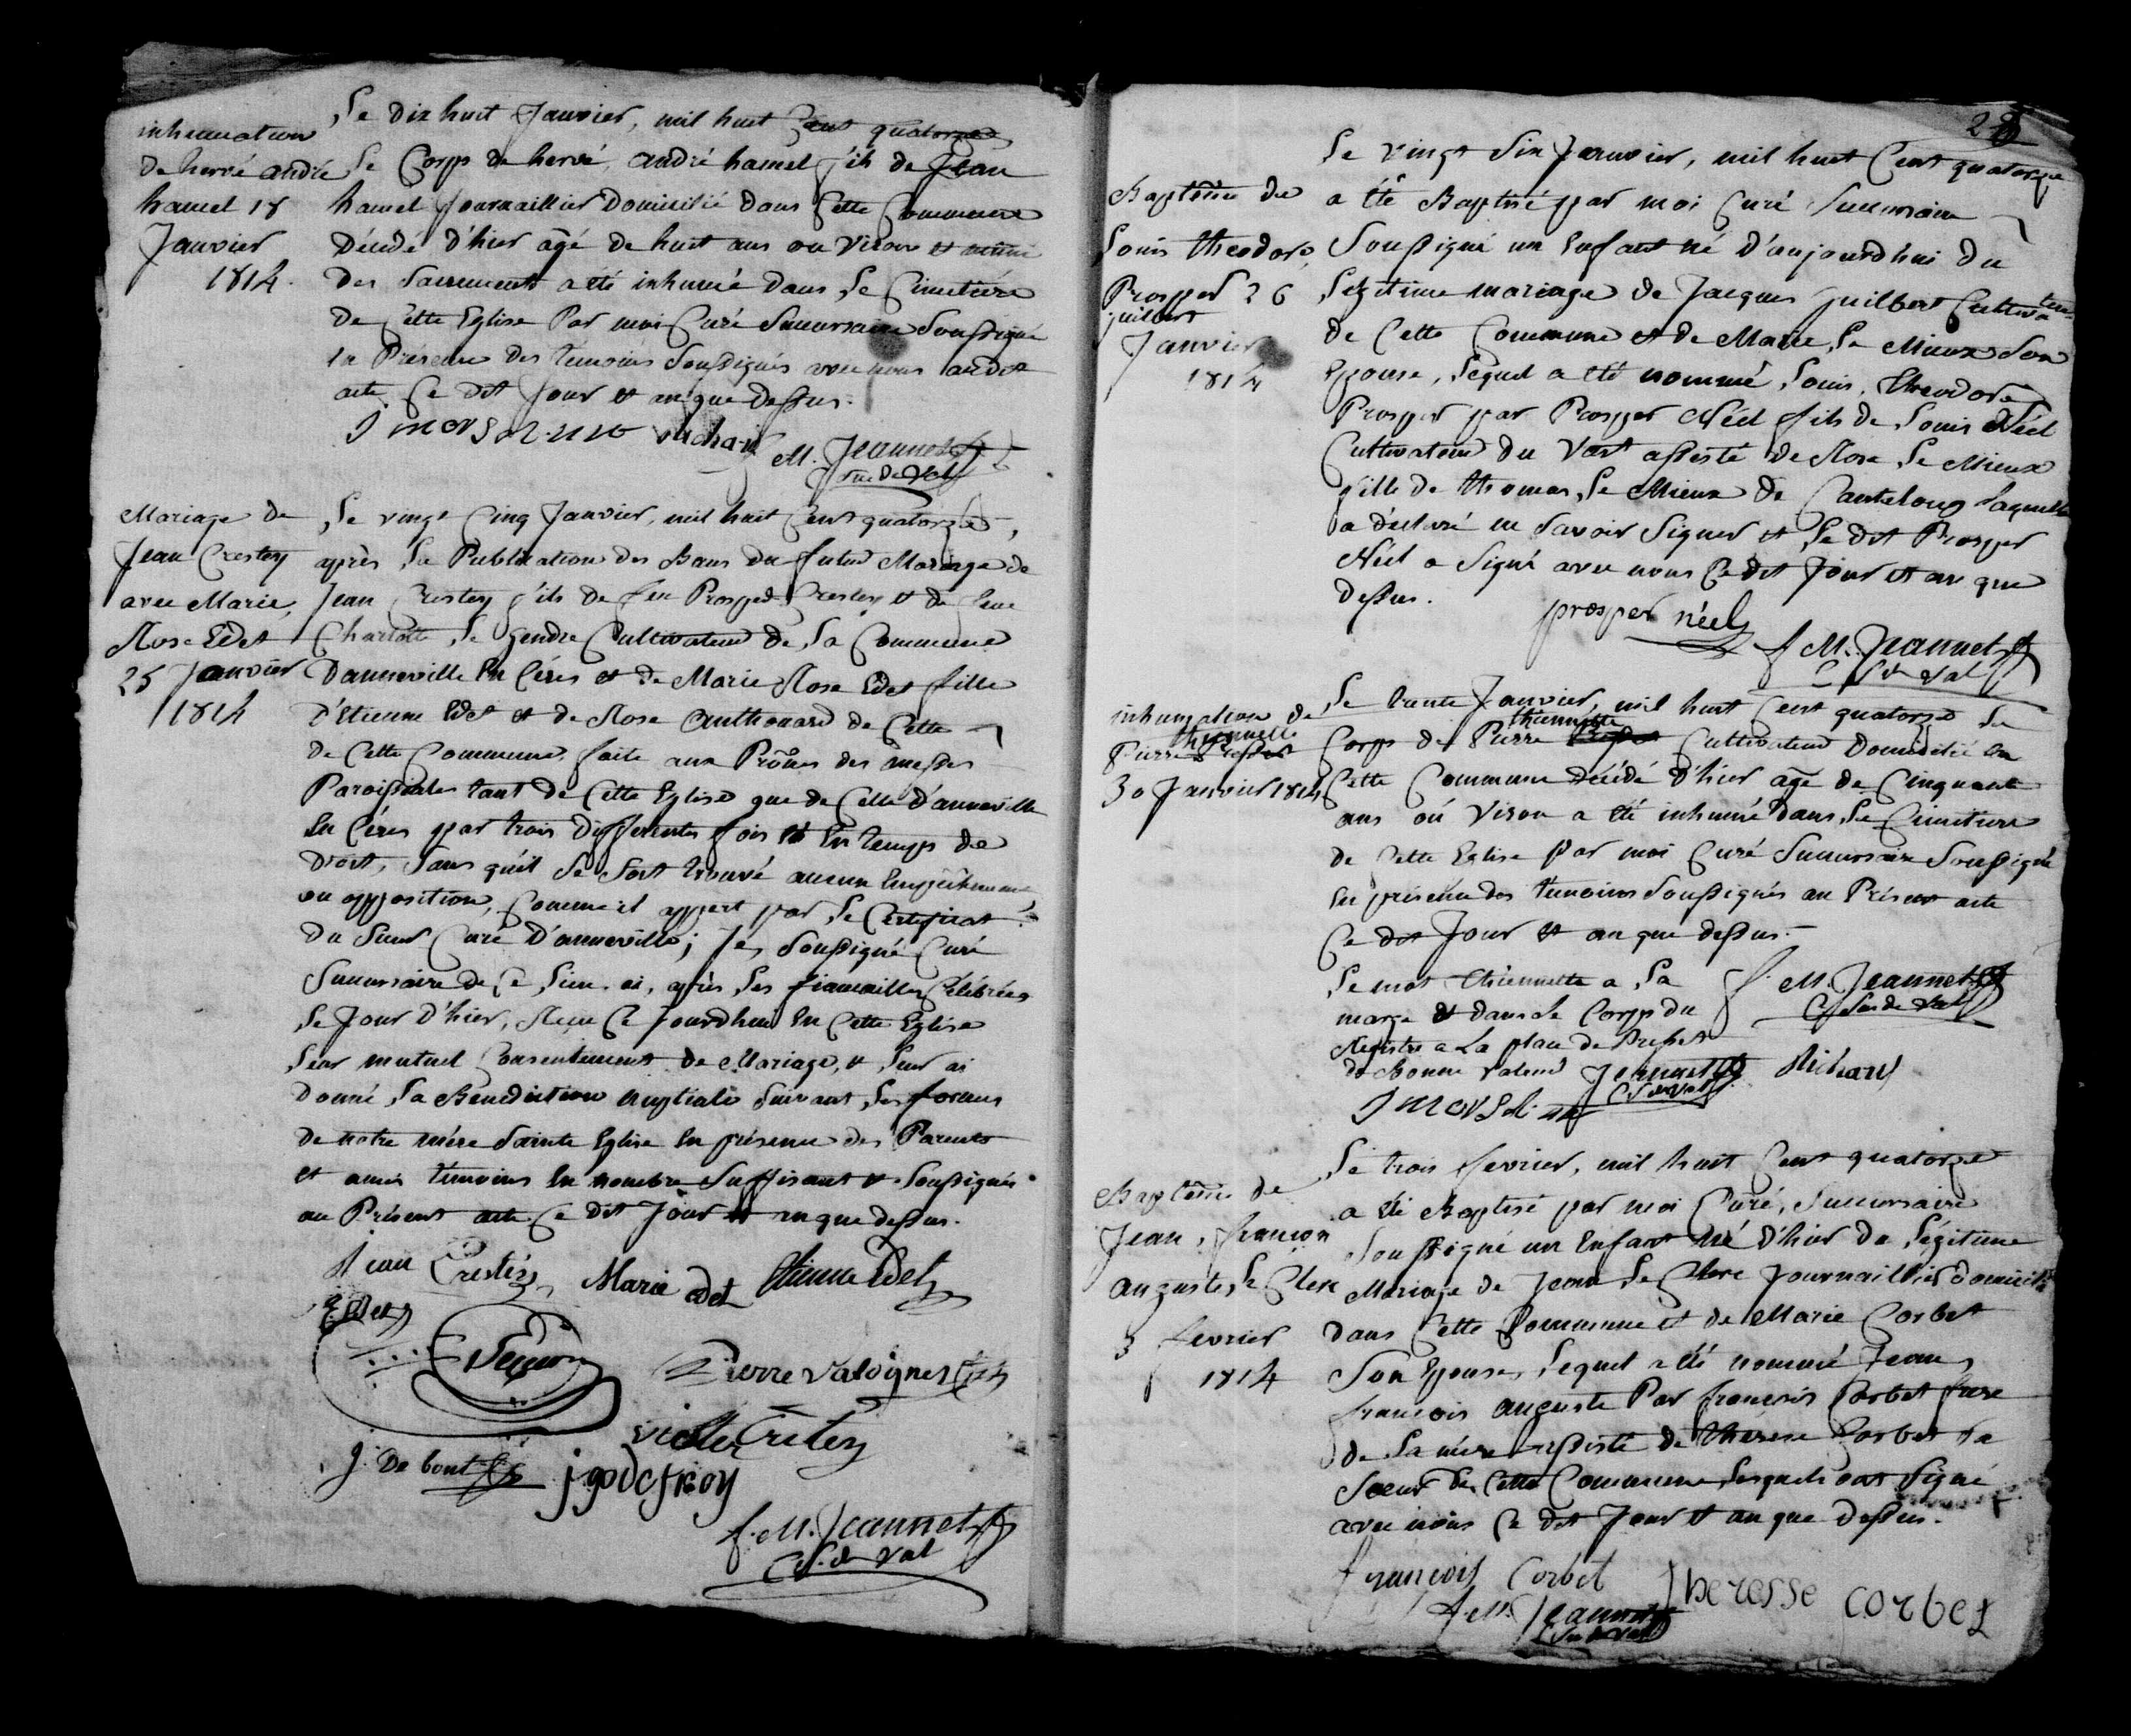 inhumation
de hervé andré
hamel 18
Janvier
1814.
Le dix huit Janvier, mil huit Cent quatorze
Le Corps de hervé, andré hamel fils de Jean
hamel Journaillier Domicilié dans Cette Commune
Décédé d'hier âgé de huit ans ou viron et muni
des Sacrements a été inhumé dans Le Cimetiére
de Cette Eglise Par moi Curé Succursaire Soussigné
En Présence des témoins Soussignés avec nous audit
acte Ce dit Jour et an que dessus.
Richard
M. Jeannet
Mariage de
Jean Crestey
avec Marie,
Rose Edet
25 Janvier
1814
Le vingt Cinq Janvier, mil huit Cent quatorze,
après La Publication des Bans du futur Mariage de
Jean Crestey fils de feu Prosper Crestey et de feue
Charlotte Le Gendre Cultivateur de La Commune
Danneville En Cérés et de Marie Rose Edet fille
d'Etienne Edet et de Rose Anthouard de Cette
de Cette Commune, faite aux Prônes des messes
Paroissiales tant de Cette Eglise que de Celle d'anneville
En Cérés par trois differentes fois et En temps de
droit, Sans qu'il Se Soit trouvé aucun Empêchement
ou opposition, Comme il appert par Le Certificat
du Sieur Curé D'anneville; Je, Soussigné Curé
Succursaire de Ce Lieu, ai, après Les fiancailles Célébrées
Le Jour D'hier, Reçu Ce Jourdhui En Cette Eglise
Leur mutuel Consentement de Mariage, et Leur ai
Donné La Benediction Nuptiale Suivant Les formes
de notre mére Sainte Eglise En présence des Parents
et amis témoins En nombre Suffisant et Soussignés
au Présent acte Ce dit Jour et an que dessus.
Jean Crestey Marie Edet Etienne Edet
Edet
Pierre Valognes
J. De bont
j godefroy
f. M. Jeannet
C. S. du Val
28
Baptême de
Louis theodore
Prosper 26
guilbert
Janvier
1814
Le vingt Six Janvier, mil huit Cent quatorze
a été Baptisé par moi Curé Succursaire
Soussigné un Enfant né d'aujourdhui du
Légitime mariage de Jacques guilbert Cultivateur
de Cette Commune et de Marie Le Mieux Son
Epouse, Lequel a été nommé Louis, Theodore
Prosper par Prosper Néel fils de Louis Néel
Cultivateur du Vast assisté de Rose Le Mieux
fille de thomas Le Mieux de Canteloup Laquelle
a déclaré ne Savoir Signer et Le dit Prosper
Néel a Signé avec nous Ce dit Jour et an que
dessus.
prosper néel
f M. Jeannet
C. S. du Val
inhumation de
thiennette
Pierre
30 Janvier 1814
Le trente Janvier, mil huit Cent quatorze Le
thiennette
Corps de Pierre Cultivateur Domicilié En
Cette Commune décédé d'hier âgé de Cinquante
ans où viron a été inhumé dans Le Cimetiere
de Cette Eglise par moi Curé Succursaire Soussigné
En présence des témoins Soussignés au Présent acte
Ce dit Jour et an que dessus.
Le mot thiennette a La
marge et dans Le Corps du
Registre a La place de
de Bonne valeur Jeannet Richard
f. M. Jeannet
Baptême de
Jean, françois
auguste Le Clerc
3 fevrier
1814
Le trois fevrier, mil huit Cent quatorze
a été Baptisé par moi Curé, Succursaire
Soussigné un Enfant né d'hier du Légitime
Mariage de Jean Le Clerc Journaillier domicilié
dans Cette Commune et de Marie Corbet
Son Epouse, Lequel a été nommé Jean,
françois auguste Par françois Corbet frere
de La mere assisté de therese Corbet Sa
Soeur de Cette Commune Lesquels ont Signé
avec nous Ce dit Jour et an que dessus.
françois Corbet theresse corbet
f. M. Jeannet